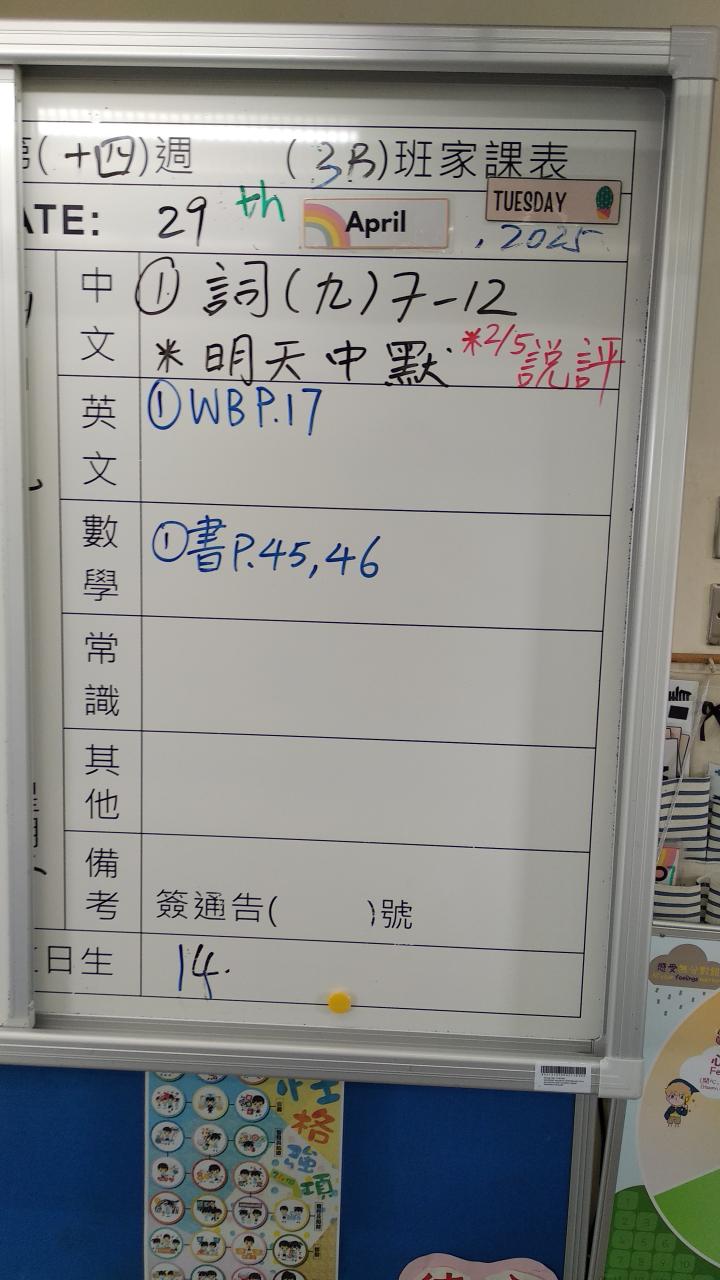 第(十四)週 (3B)班家課表
ATE: 29th April, 2025 TUESDAY
中文 ① 詞(九)7-12
*明天中默 *2/5說評
英文 ①WB P.17
數學 ①書P.45,46
常識
其他
備考 簽通告( )號
日生 14.
性格強項
感受